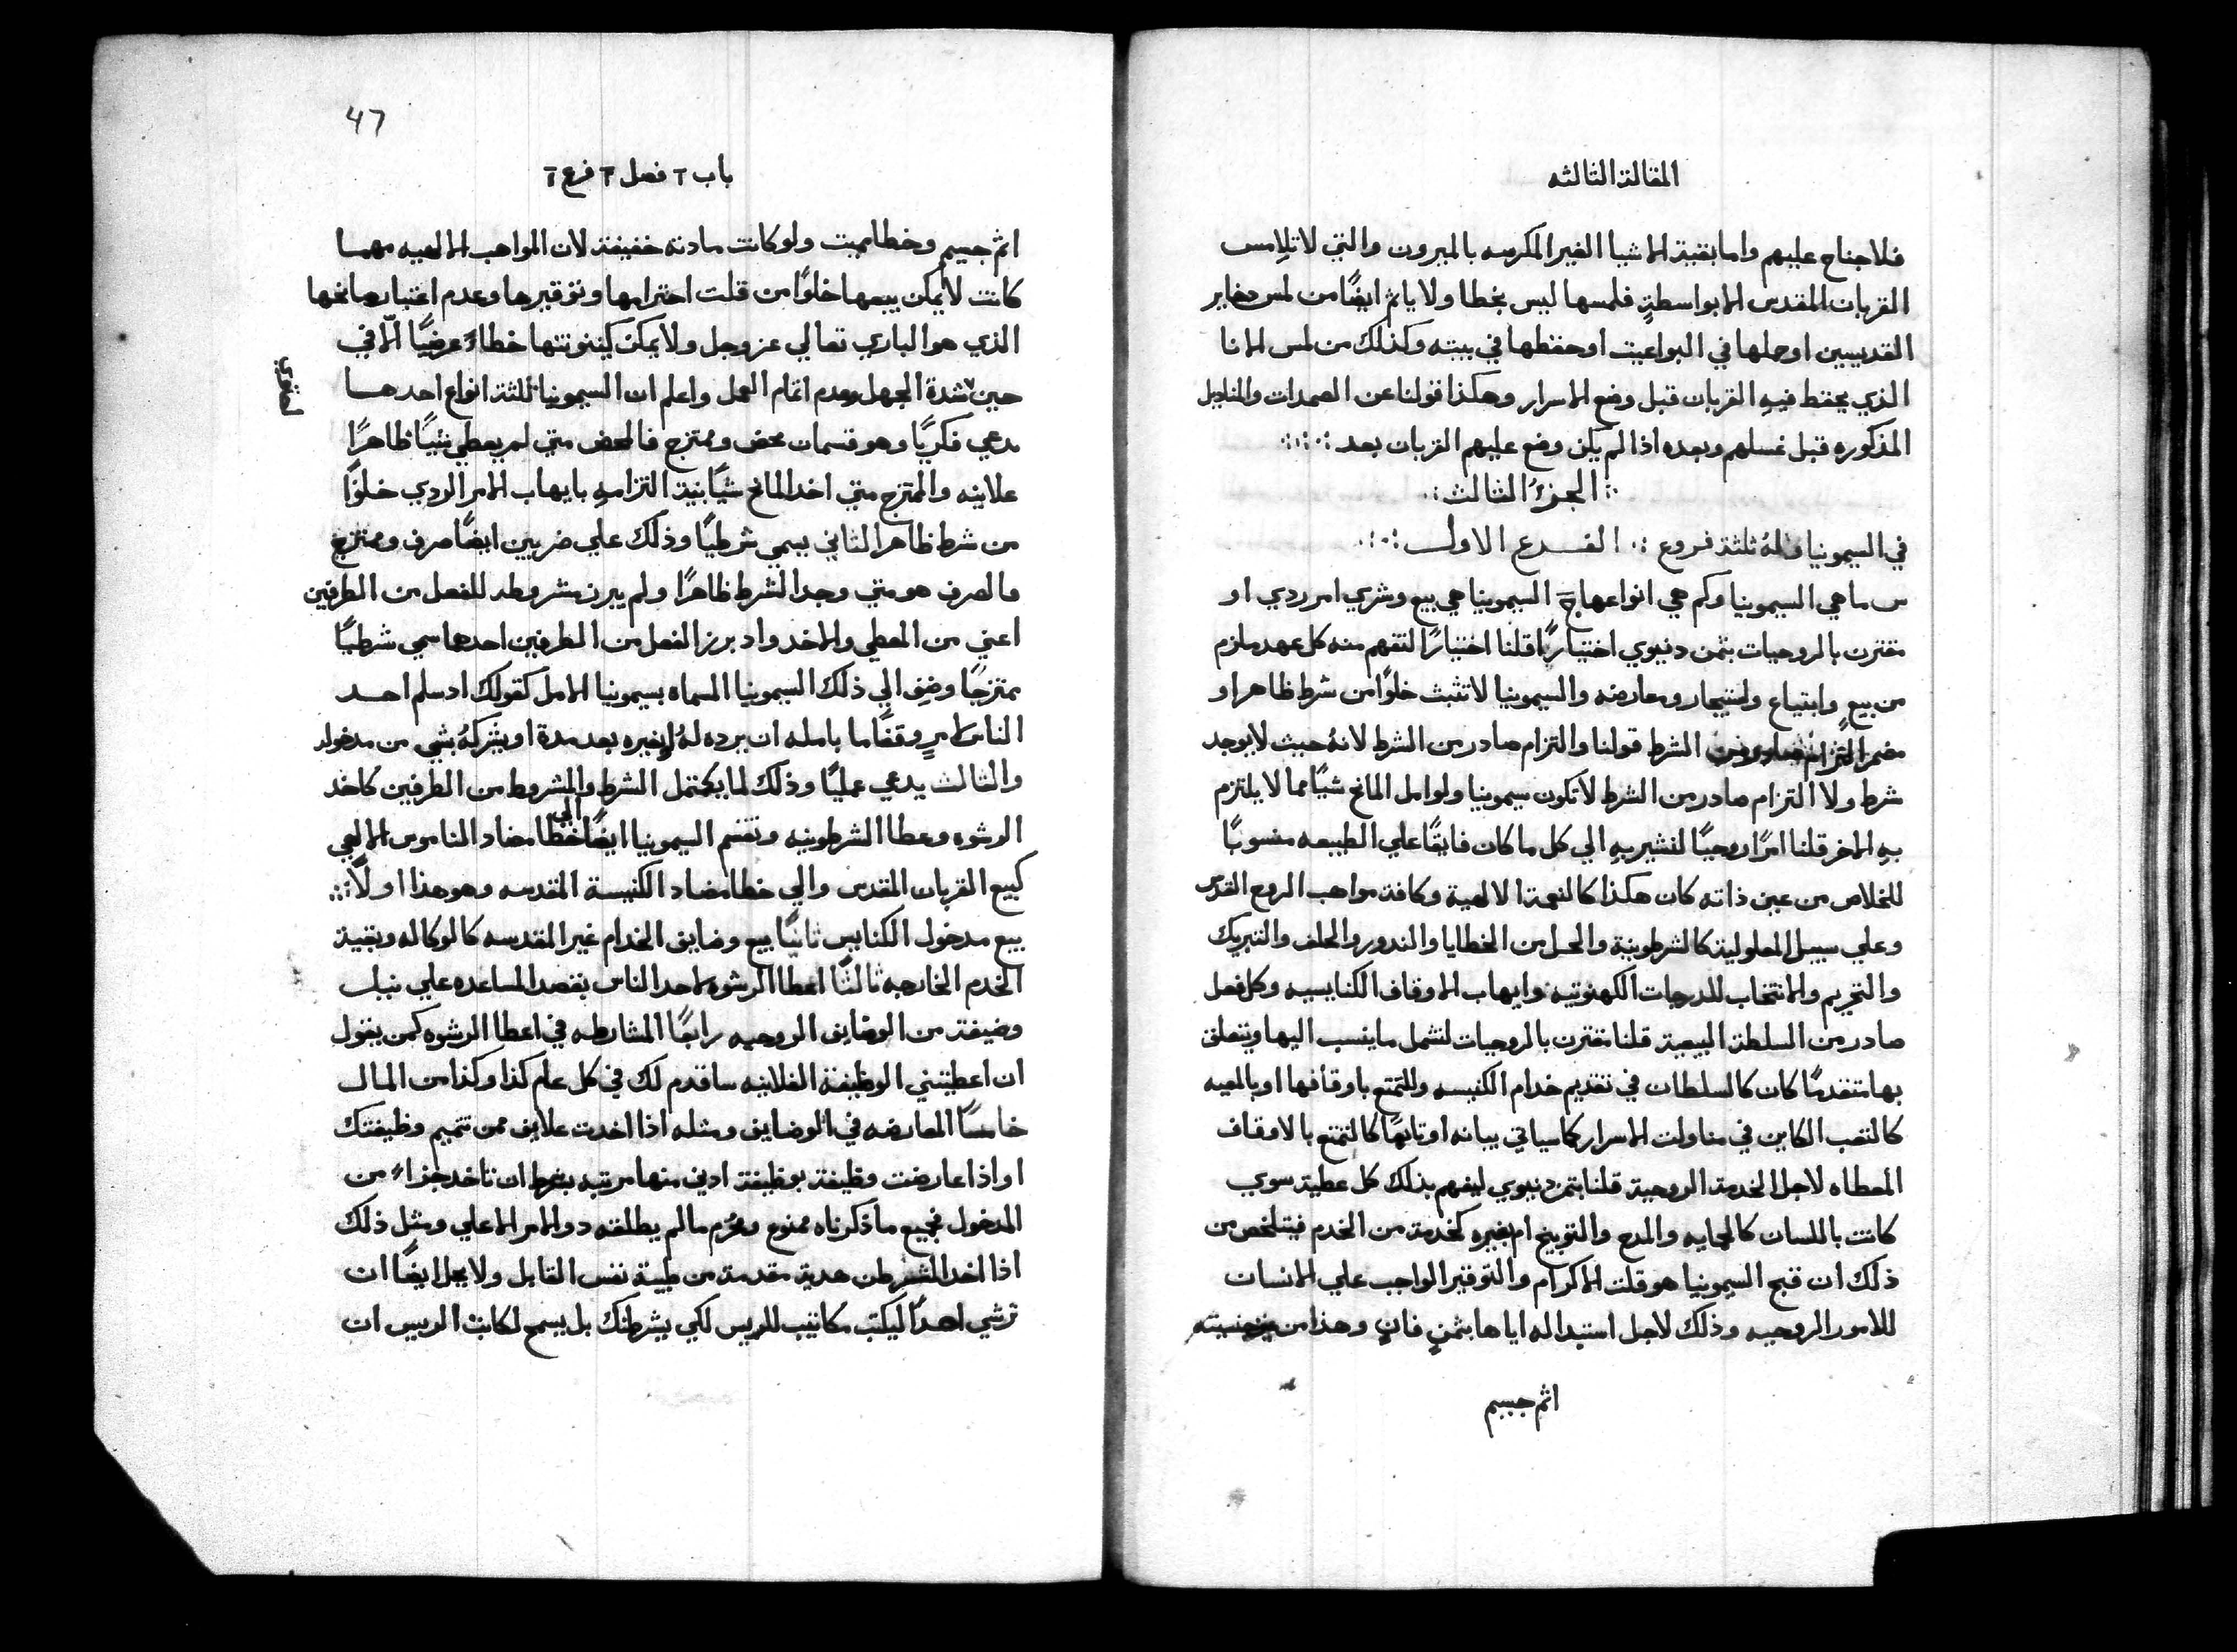 المقالة الثالثه
فلا جناح عليهم واما بقية الاشيا الغير المكرسه بالميرون والتي لا تلامس
القربان المقدس الا بواسطةٍ فلمسها ليس بخطا ولا ياثم ايضًا من لمس دخاير
القديسين او حملها في البواعيت او حفظها في بيته وكذلك من لمس الانا
الذي يحفظ فيه القربان قبل وضع الاسرار وهكذا قولنا عن الصمدات والمناديل
المذكوره قبل غسلهم وبعده اذا لم يكن وضع عليهم القربان بعد
الجزءُ الثالث
في السيمونيا وله ثلثة فروع الفرع الاول
س ما هي السيمونيا وكم هي انواعها ج السيمونيا هي بيع وشري امر ردي او
مقترن بالروحيات بثمن دنيوي اختيارًا قلنا اختيارًا لتفهم منه كل عهد ملزم
من بيعٍ وابتياع واستيجار ومعارضه والسيمونيا لا تثبث خلوًا من شرط ظاهر او
مضمر الشرط قولنا والتزام صادر من الشرط لانهُ حيث لا يوجد
شرط ولا التزام صادر من الشرط لا تكون سيمونيا ولو امل المانح شيًا مما لا يلتزم
به الاخر قلنا امرًا روحيًا لنشير به الي كل ما كان فايقًا علي الطبيعه منسوبًا
للخلاص من عين ذاته كان هكذا كالنعمة الالهية وكافة مواهب الروح القدس
وعلي سبيل المعلولية كالشرطونية والحل من الخطايا والندور والحلف والتبريك
والتحريم والانتخاب للدرجات الكهنوتيه وايهاب الاوقاف الكنايسيه وكل فعل
صادر من السلطة البيعية قلنا مقترن بالروحيات لتشمل ما ينسب اليها ويتعلق
بها متقدمًا كان كالسلطان في تقديم خدام الكنيسه وللتمتع باوقافها او بالمعيه
كالتعب الكاين في مناولت الاسرار كما سياتي بيانه او تابعًا كالتمتع بالاوقاف
المعطاه لاجل الخدمة الروحية قلنا بثمن دنيوي ليفهم بذلك كل عطية سوي
كانت باللسان كالحمايه والمدح والتوبيخ ام بغيره كخدمة من الخدم فيتلخص من
ذلك ان قبح السيمونيا هو قلت الاكرام والتوقير الواجب علي الانسان
للامور الروحيه وذلك لاجل استبداله اياها بثمنٍ فانٍ وهذا من
اثم جسيم
47
باب ٢ فصل ٣ فرع ١
اثم جسيم وخطا مميت ولو كانت مادته خفيفة لان المواهب الالهيه مهما
كانت لا يمكن بيعها خلوًا من قلت احترامها وتوقيرها وعدم اعتبار مانحها
الذي هو الباري تعالي عز وجل ولا يمكن كينونتها خطاءً عرضيًا الّا في
حين شدة الجهل وعدم اتمام العمل واعلم ان السيمونيا ثلثة انواع احدها
يدعي فكريًا وهو قسمان محض وممتزج فالمحض متي لم يعطي شيًا ظاهرًا
علاينه والممتزج متي اخد المانح شيًا بنية التزامهِ بايهاب الامر الردي خلوًا
من شرط ظاهر الثاني يسمي شرطيًا وذلك علي ضربين ايضًا صرف وممتزج
فالصرف هو متي وجد الشرط ظاهرًا ولم يبرز مشروطه للفعل من الطرفين
اعني من المعطي والاخد واد برز الفعل من الطرفين احدها سمي شرطيًا
ممتزجًا وضِف الي ذلك السيمونيا المسماه بسيمونيا الامل كقولك اد سلم احد
الناس لامرءٍ وقفًا ما بامله ان يرده لهُ او لغيره بعد مدة او يشركهُ بشي من مدخوله
والثالث يدعي عمليًا وذلك لما يكتمل الشرط والمشروط من الطرفين كاخد
الرشوه وعطا الشرطونيه وتقسم السيمونيا ايضًا الي خطا مضاد الناموس الالهي
كبيع القربان المقدس والي خطا مضاد الكنيسة المقدسه وهو هذا اولًا
بيع مدخول الكنايس ثانيًا بيع وضايف الخدام غير المقدسه كالوكاله وبقية
الخدم الخارجه ثالثًا اعطا الرشوه لاحد الناس بقصد المساعده علي نيل
وضيفة من الوضايف الروحيه رابعًا المشارطه في اعطا الرشوه كمن يقول
ان اعطيتني الوظيفة الفلانيه ساقدم لك في كل عام كذا وكذا من المال
خامسًا المعارضه في الوضايف ومثله اذا اخدت علايف ممن تتميم وظيفتك
او اذا عارضت وظيفة بوظيفة ادني منها مرتبه بشرط ان تاخد جزاءً من
المدخول فجميع ما ذكرناه ممنوع ومحرم ما لم يطلقه دو الامر الاعلي ومثل ذلك
اذا اخد المشرطن هدية مقدمة من طيبة نفس القابل ولا يحل ايضًا ان
ترشي احدًا ليكتب مكاتيب للريس لكي يشرطنك بل يسمح لكاتب الريس ان